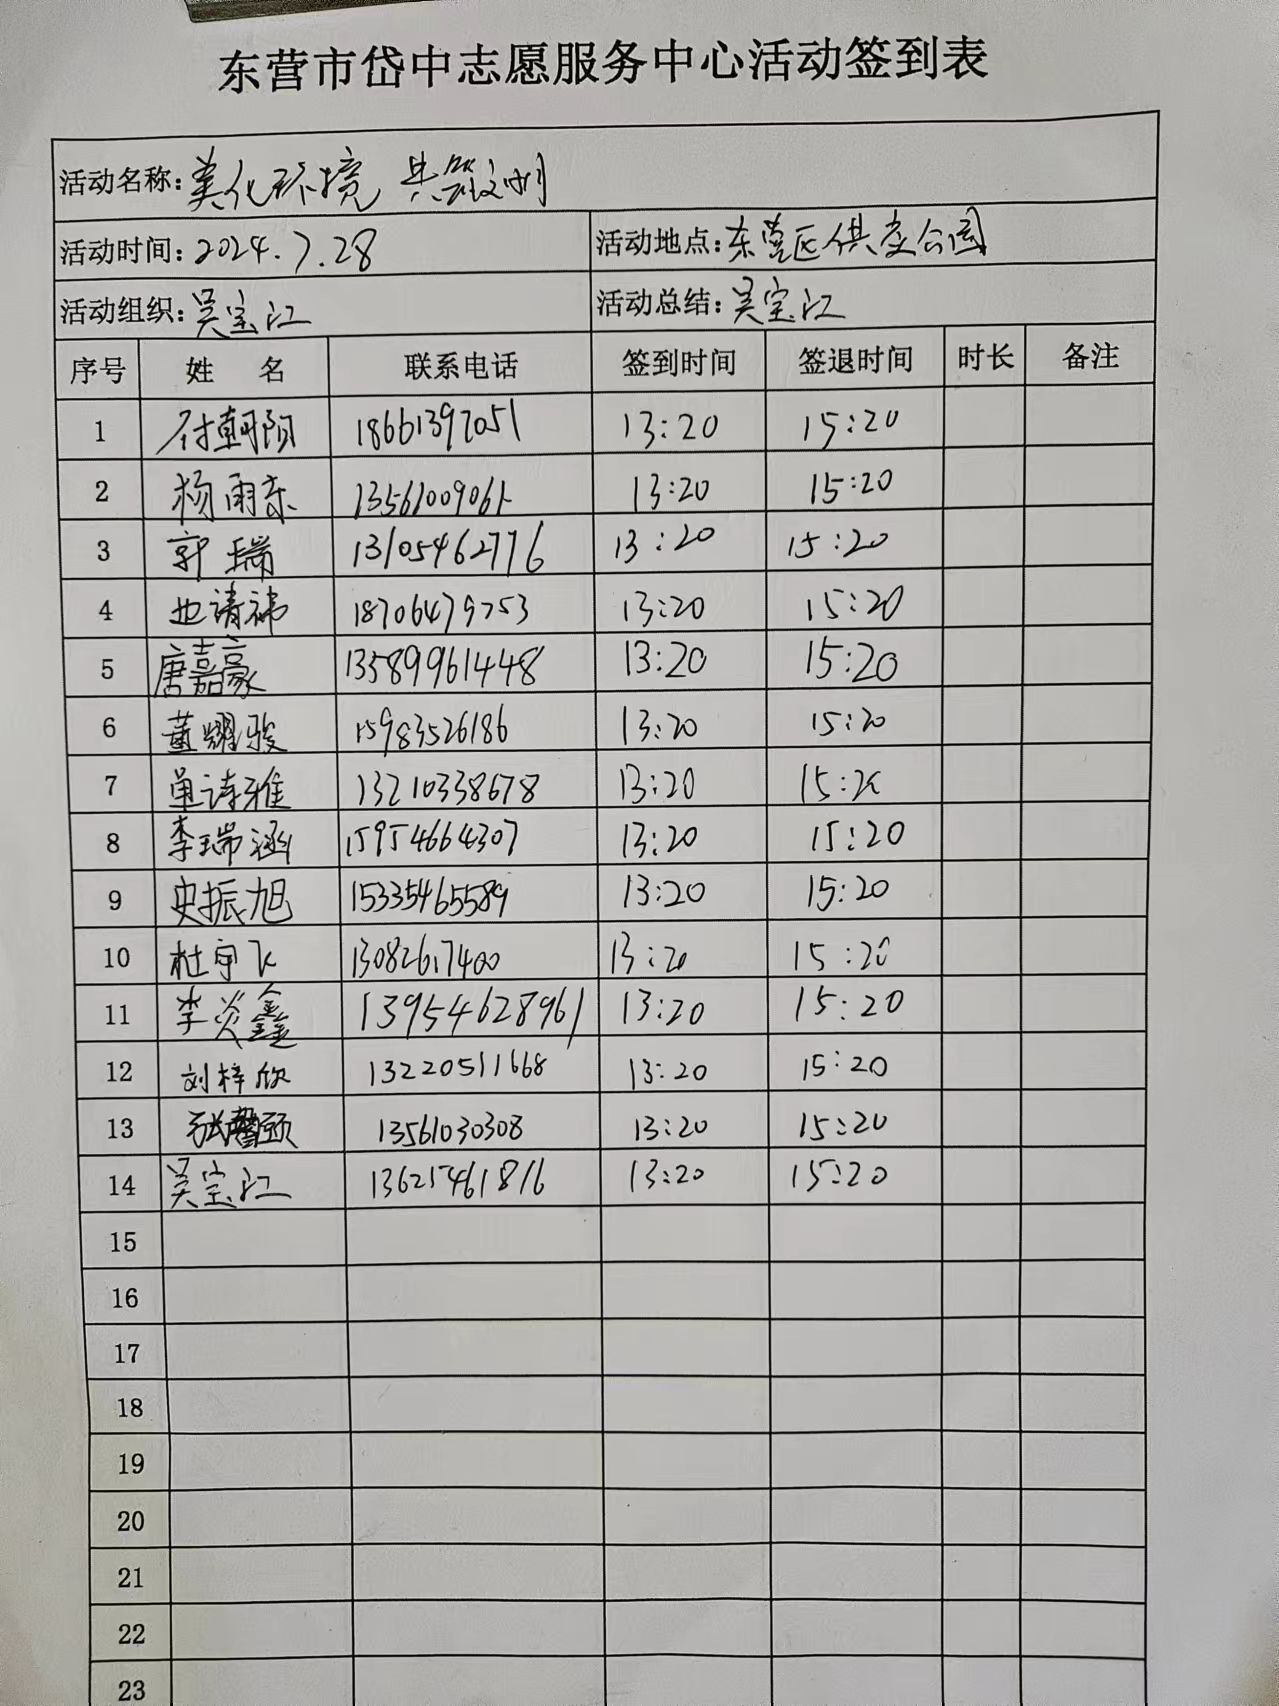 东营市岱中志愿服务中心活动签到表
活动名称: 美化环境 共筑文明
活动时间: 2024.7.28 活动地点: 东营区供卖公园
活动组织: 吴宝江 活动总结: 吴宝江
序号 姓 名 联系电话 签到时间 签退时间 时长 备注
1 付朝阳 18661397051 13:20 15:20
2 杨雨东 1356100906 13:20 15:20
3 郭瑞 13105462776 13:20 15:20
4 请祎 18706479753 13:20 15:20
5 唐嘉豪 13589961448 13:20 15:20
6 董耀骏 15983526186 13:20 15:20
7 单诗雅 13210338678 13:20 15:20
8 李瑞涵 15954664307 13:20 15:20
9 史振旭 15335465589 13:20 15:20
10 杜宇飞 13082617400 13:20 15:20
11 李炎鑫 13954628961 13:20 15:20
12 刘梓欣 13220511668 13:20 15:20
13 张 颐 13561030308 13:20 15:20
14 吴宝江 13625461816 13:20 15:20
15
16
17
18
19
20
21
22
23